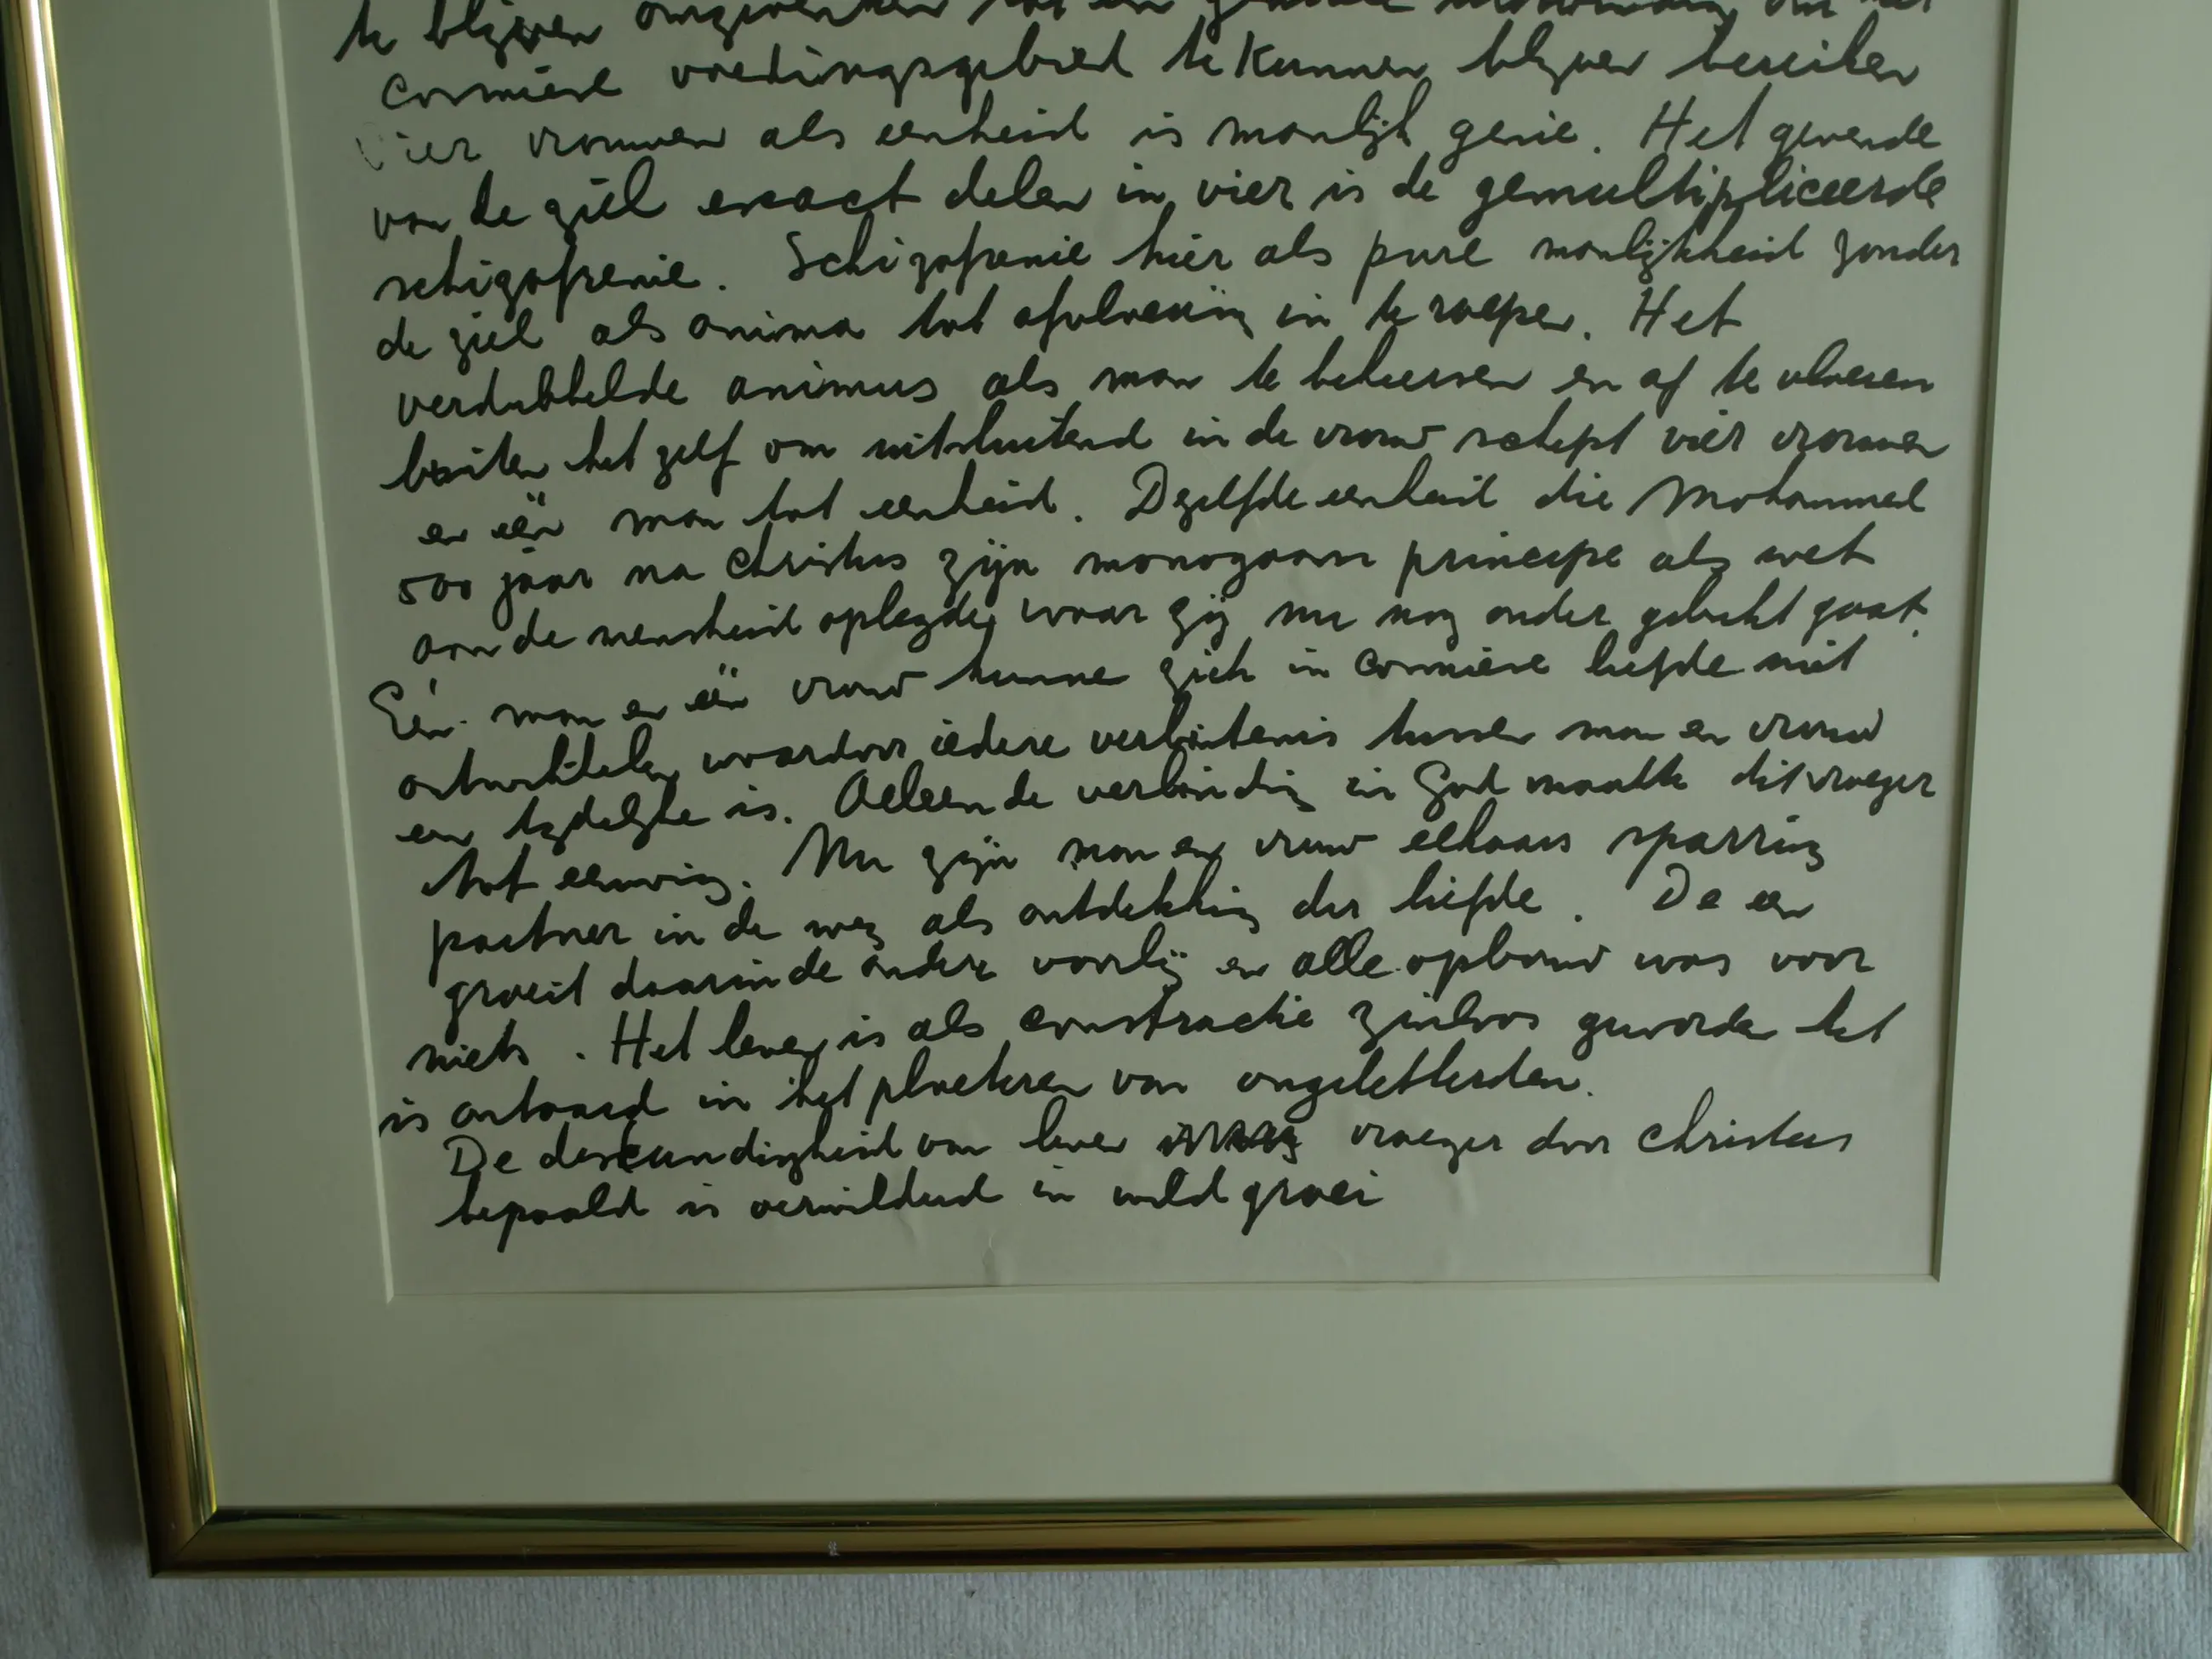 te blijven
voedingsgebied te kunnen blijven bereiken
vier vrouwen als eenheid is manlijk genie. Het gevende
van de ziel exact delen in vier is de gemultipliceerde
schizofrenie. Schizofrenie hier als pure manlijkheid zonder
de ziel als anima tot afvloeiing in te roepen. Het
verdubbelde animus als man te beheersen en af te vloeien
buiten het zelf om uitsluitend in de vrouw schept vier vrouwen
en één man tot eenheid. Dezelfde eenheid die Mohammed
500 jaar na Christus zijn monogaam principe als wet
aan de mensheid oplegde, waar zij nu nog onder gebukt gaat.
Eén man en één vrouw kunne zich in liefde niet
ontwikkelen, waardoor iedere verbintenis tussen man en vrouw
een tijdelijke is. Alleen de verbinding in God maakte dit vroeger
tot eeuwig. Nu zijn man en vrouw elkaars sparring
partner in de weg als ontdekking der liefde. De een
groeit daarin de andere voorbij en alle opbouw was voor
niets. Het leven is als constructie zinloos geworden het
is ontaard in het ploeteren van ongeletterden.
De deskundigheid van leven vroeger door Christus
bepaald is verwilderd in wild groei